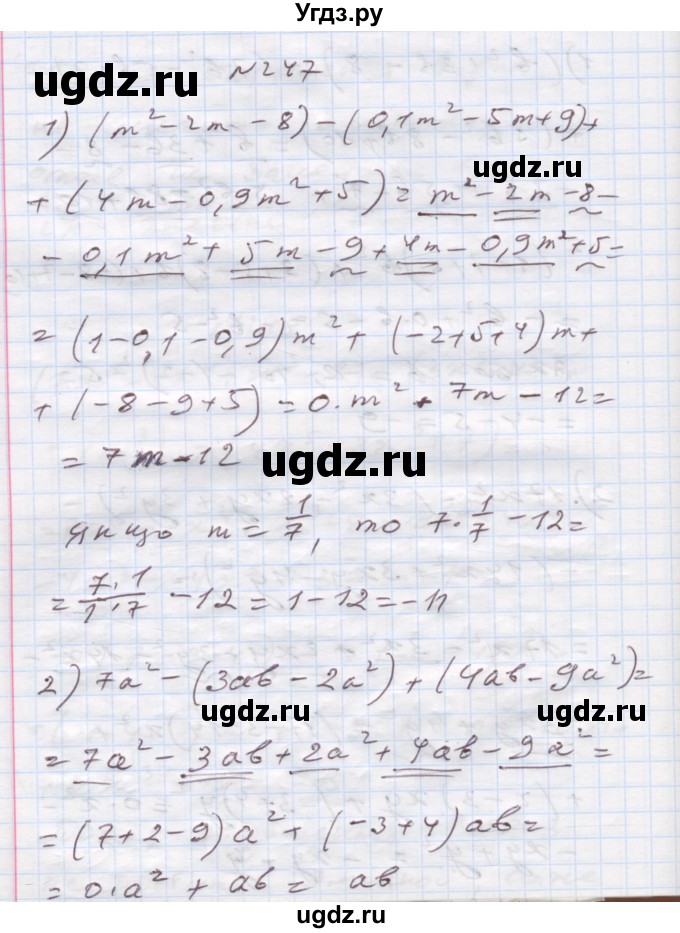 Угдз.ру
ugdz.ru
№247
1) (m² - 2m - 8) - (0,1m² - 5m + 9) +
+ (4m - 0,9m² + 5) = m² - 2m - 8 -
- 0,1m² + 5m - 9 + 4m - 0,9m² + 5 =
= (1 - 0,1 - 0,9)m² + (-2 + 5 + 4)m +
+ (-8 - 9 + 5) = 0·m² + 7m - 12 =
= 7m - 12
ugdz.ru
якщо m = 1/7, то 7·1/7 - 12 =
= 7·1/1·7 - 12 = 1 - 12 = -11
2) 7a² - (3ab - 2a²) + (4ab - 9a²) =
ugdz.ru ugdz.ru
= 7a² - 3ab + 2a² + 4ab - 9a² =
= (7 + 2 - 9)a² + (-3 + 4)ab =
= 0·a² + ab = ab
ugdz.ru